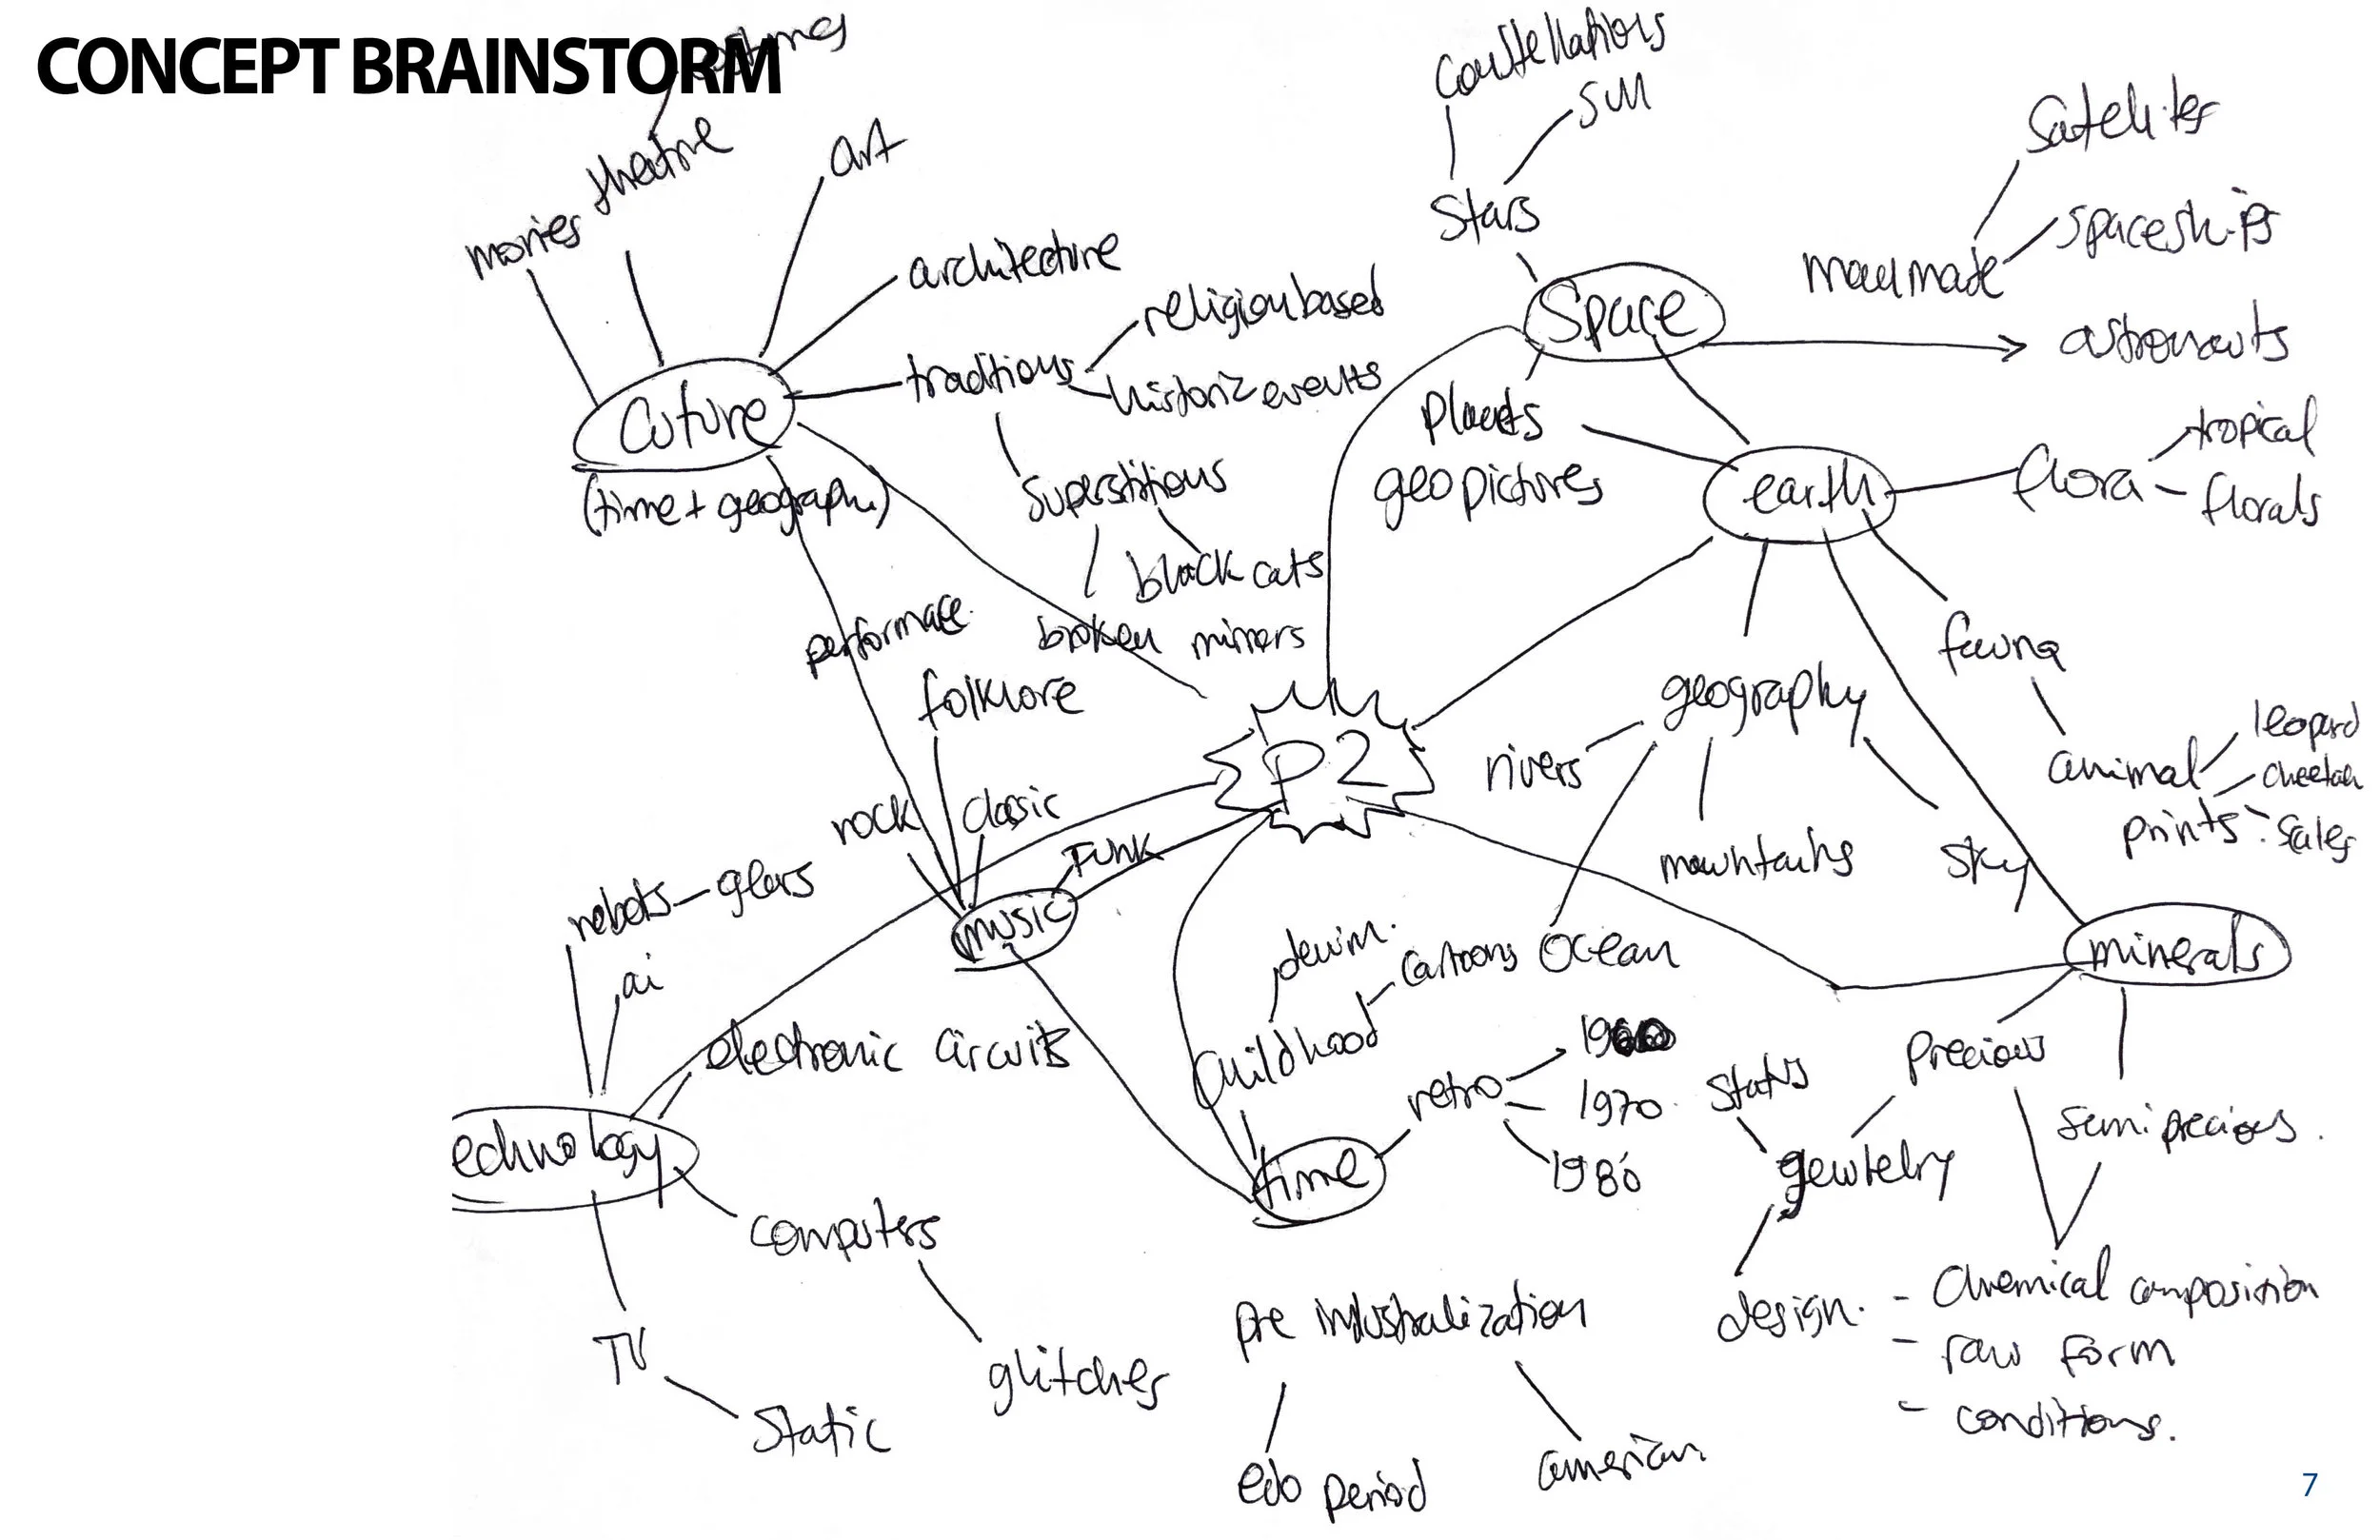 CONCEPT BRAINSTORM
theatre
movies
art
architecture
traditions
religion based
historic events
Cuture
(time + geography)
superstitions
black cats
broken mirrors
performace.
folklore
rock
classic
FUNK
music
robots - glass
ai
electronic circuits
echnology
computers
glitches
TV
Static
P2
constellations
sun
Stars
Space
Satelites
spaceships
manmade
astronauts
Planets
geo pictures
earth
flora
tropical
florals
fauna
animal
prints
leopard
cheetah
geography
rivers
mountains
sky
Ocean
denim.
cartoons
childhood
time
retro
1970
1980
pre industralization
edo period
american
minerals
precious
semi precious.
status
gewtelry
design.
- Chemical composition
- raw form
- conditions.
7